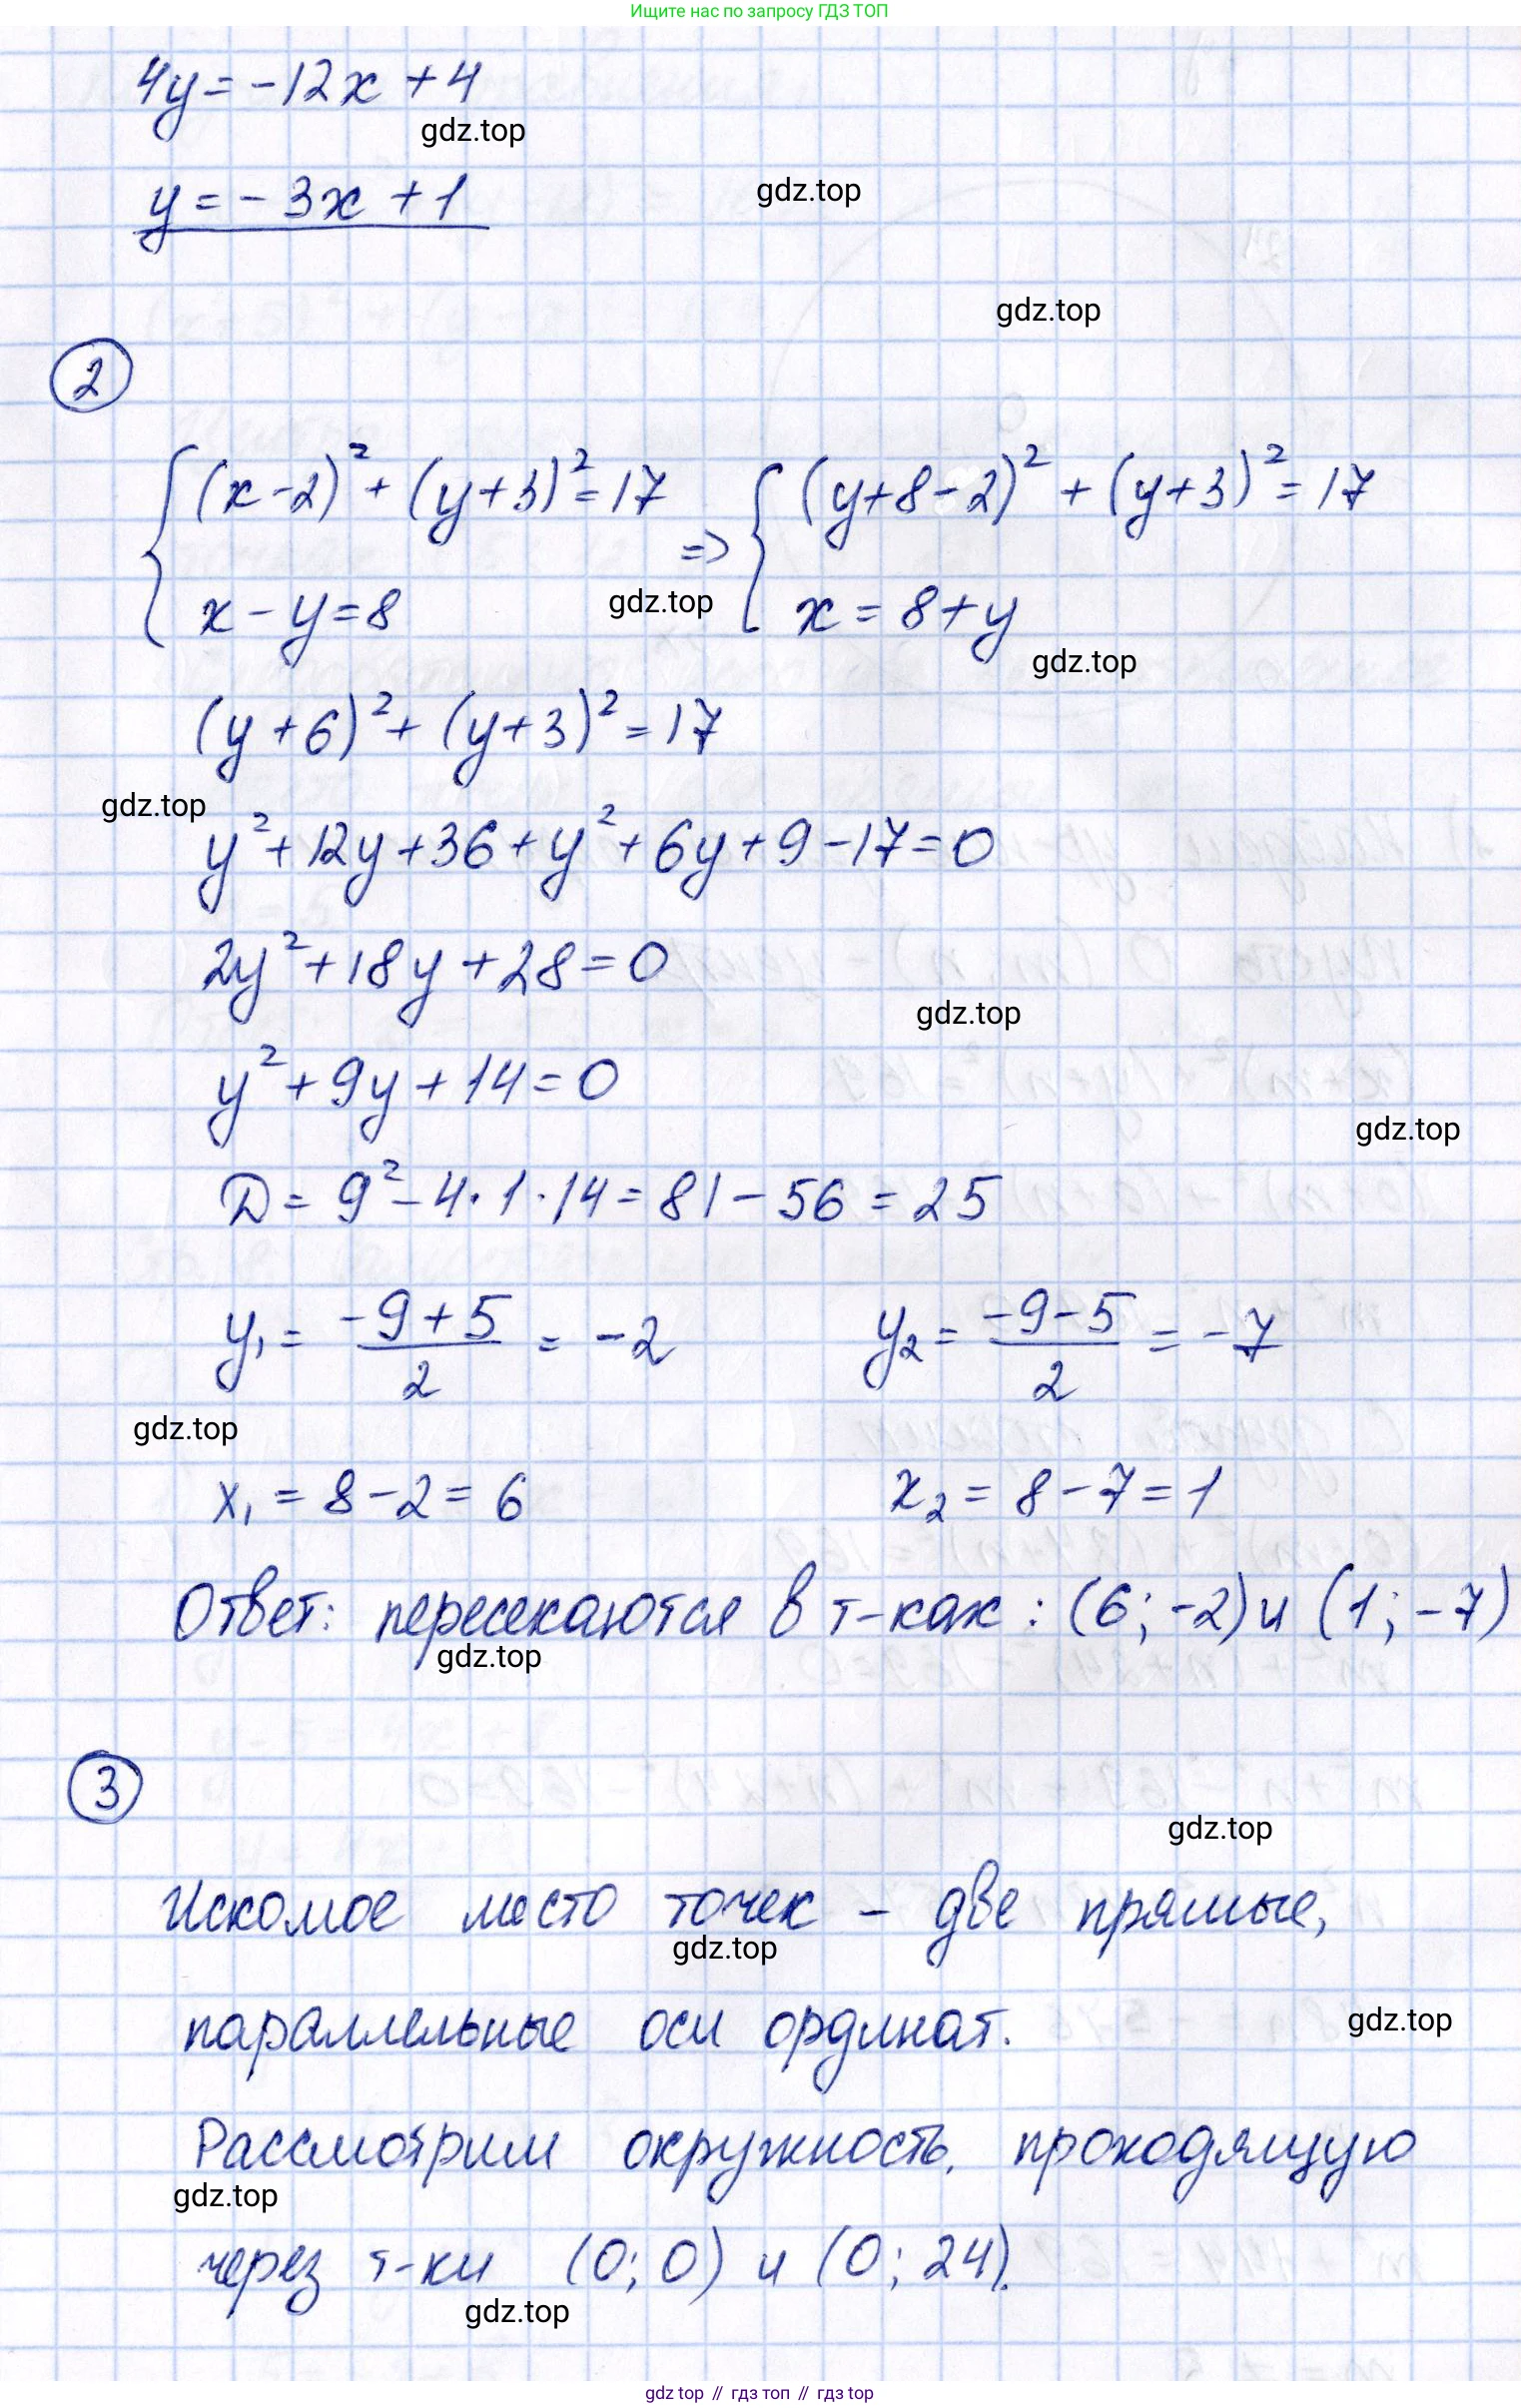 Ищите нас по запросу ГДЗ ТОП
4y = -12x + 4
gdz.top
y = -3x + 1
gdz.top
gdz.top
2
{ (x-2)² + (y+3)² = 17 => { (y+8-2)² + (y+3)² = 17
x - y = 8 x = 8 + y
gdz.top
gdz.top
(y+6)² + (y+3)² = 17
gdz.top
y² + 12y + 36 + y² + 6y + 9 - 17 = 0
2y² + 18y + 28 = 0
gdz.top
y² + 9y + 14 = 0
gdz.top
D = 9² - 4·1·14 = 81 - 56 = 25
y₁ = (-9+5)/2 = -2 y₂ = (-9-5)/2 = -7
gdz.top
x₁ = 8 - 2 = 6 x₂ = 8 - 7 = 1
Ответ: пересекаются в т-ках: (6; -2) и (1; -7)
gdz.top
3
gdz.top
Искомое место точек - две прямые,
gdz.top
параллельные оси ординат.
gdz.top
Рассмотрим окружность, проходящую
gdz.top
через т-ки (0; 0) и (0; 24).
gdz.top
gdz top // гдз топ // гдз top